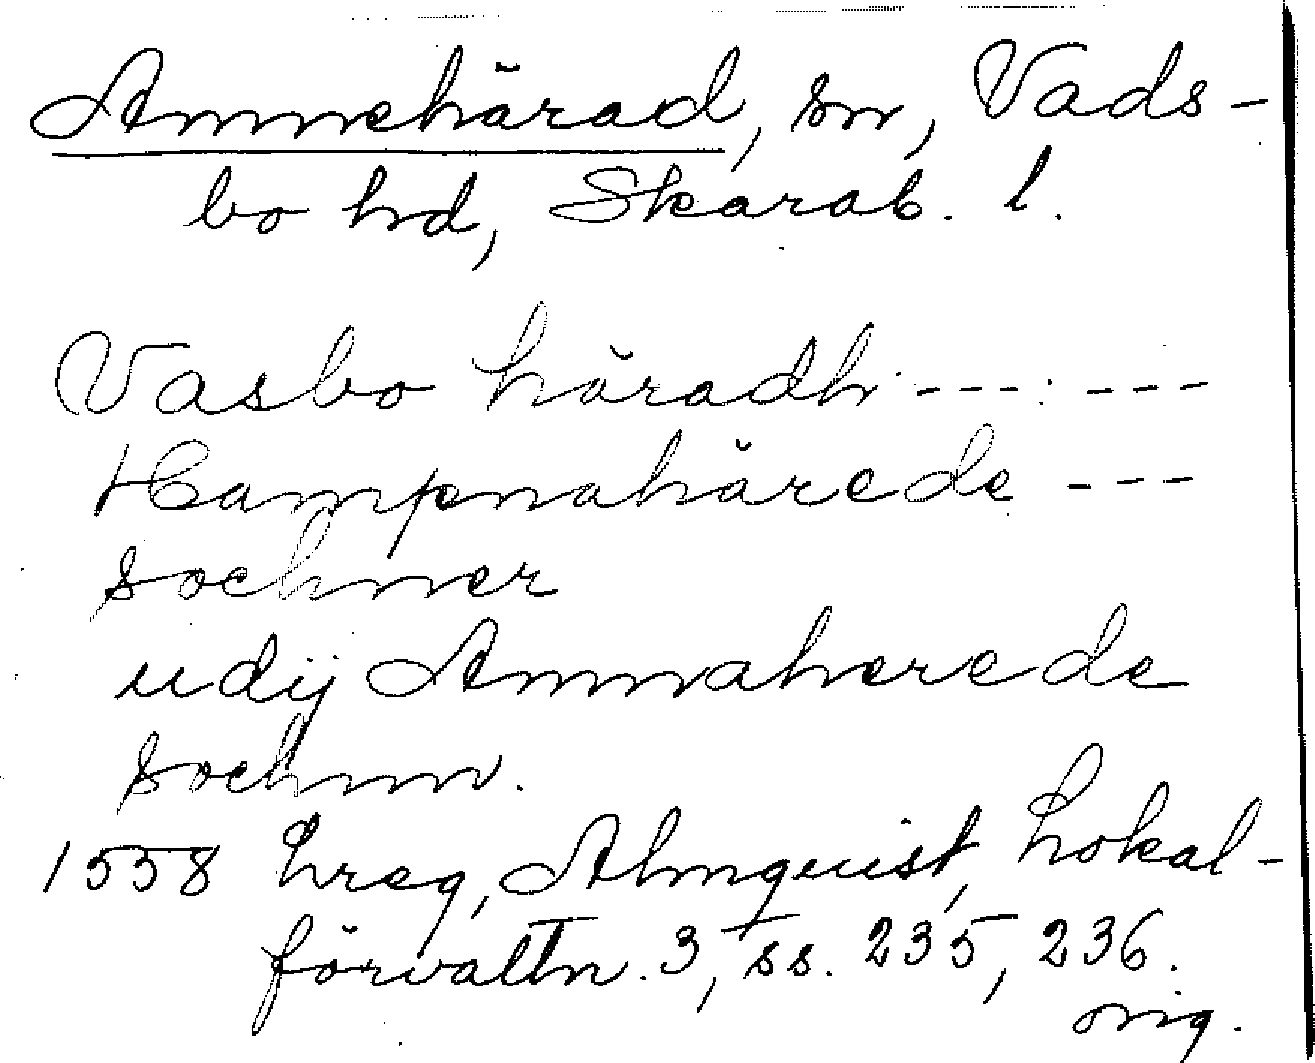 Amnehärad, sn, Vads-
bo hd, Skarab. l.
Vasbo häradh --- : ---
Hampnahärede ---
sochner
udij Amnaherede
sochnn.
1558 hreg, Almquist, Lokal-
förvaltn. 3, ss. 235, 236.
orig.